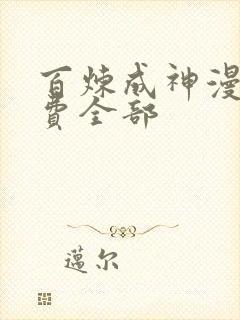 百炼成神漫
费全部
邁尔